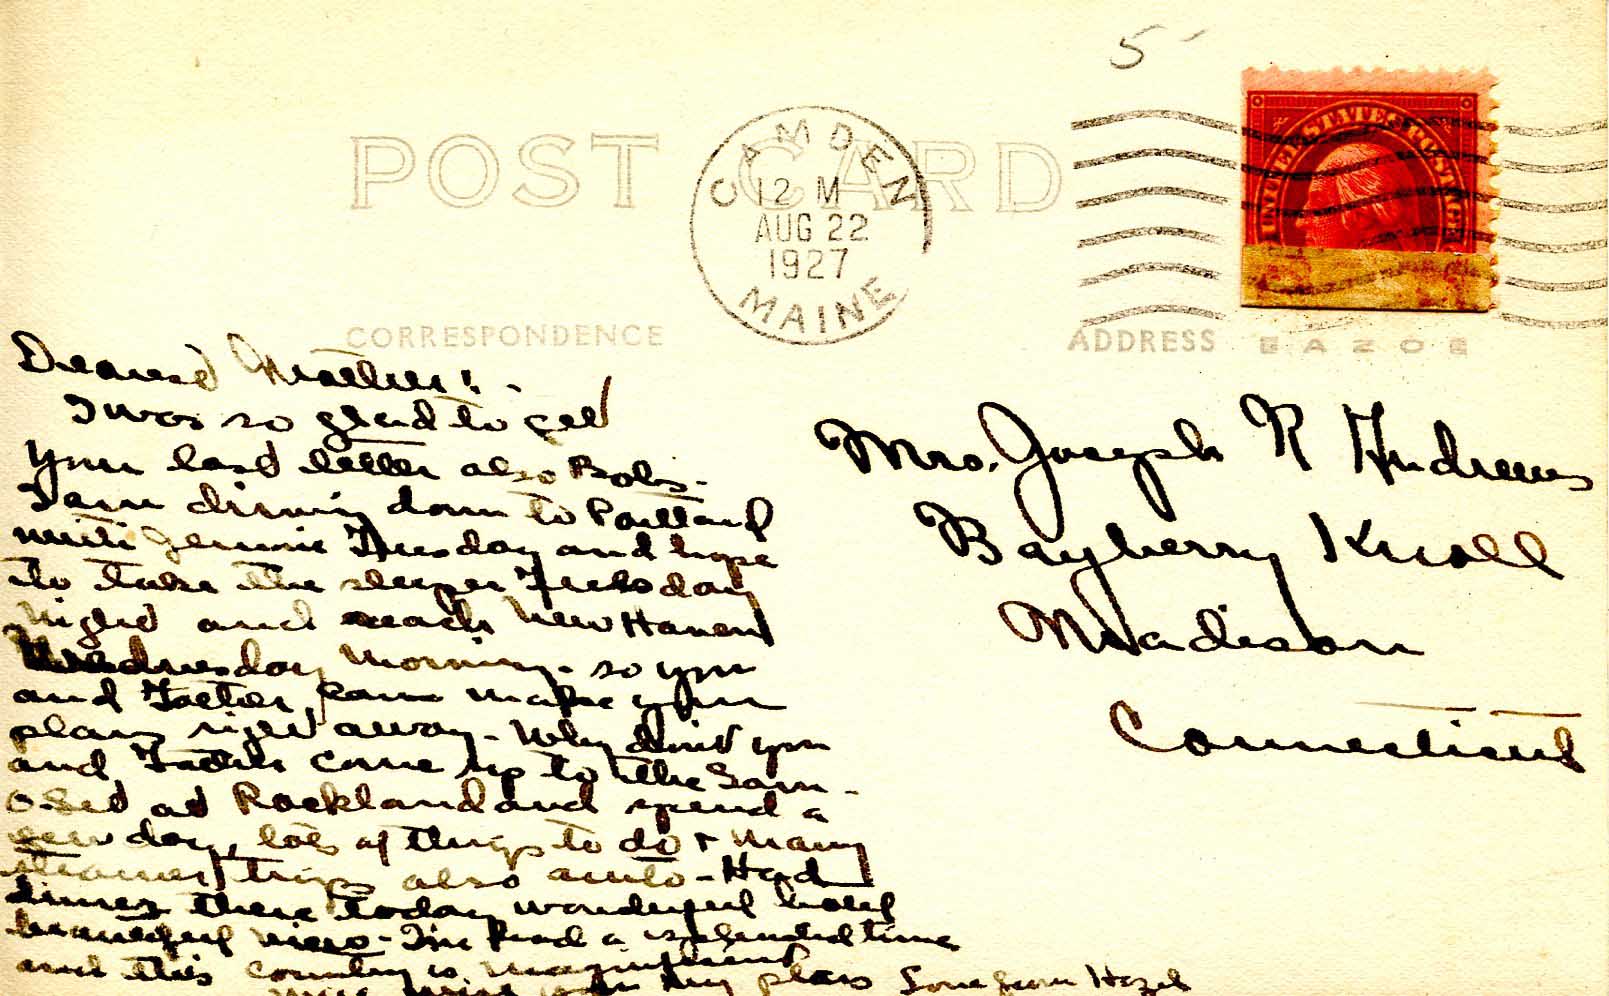 5
POST CARD
CAMDEN
12 M
AUG 22
1927
MAINE
UNITED STATES POSTAGE
CORRESPONDENCE
ADDRESS
EAZOE
Dearest Mother! -
I was so glad to get
your last letter also Bobs -
I am driving down to Portland
with Jennie Tuesday and hope
to take the sleeper Tuesday
night and reach New Haven
Wednesday morning - so you
and Father can make your
plans right away - Why don't you
and Father come up to the Sam-
oset at Rockland and spend a
few days, lots of things to do + many
steamer trips also auto - Had
dinner there today wonderful hotel
beautiful view - I've had a splendid time
and this country is magnificent
my plans Love from Hazel
Mrs. Joseph R Andrews
Bayberry Knoll
Madison
Connecticut